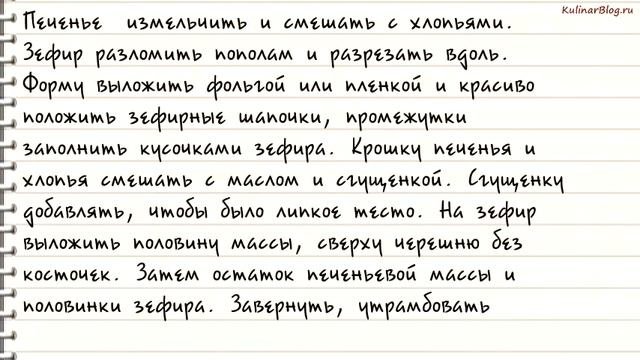 KulinarBlog.ru
Печенье измельчить и смешать с хлопьями.
Зефир разломить пополам и разрезать вдоль.
Форму выложить фольгой или пленкой и красиво
положить зефирные шапочки, промежутки
заполнить кусочками зефира. Крошку печенья и
хлопья смешать с маслом и сгущенкой. Сгущенку
добавлять, чтобы было липкое тесто. На зефир
выложить половину массы, сверху черешню без
косточек. Затем остаток печеньевой массы и
половинки зефира. Завернуть, утрамбовать